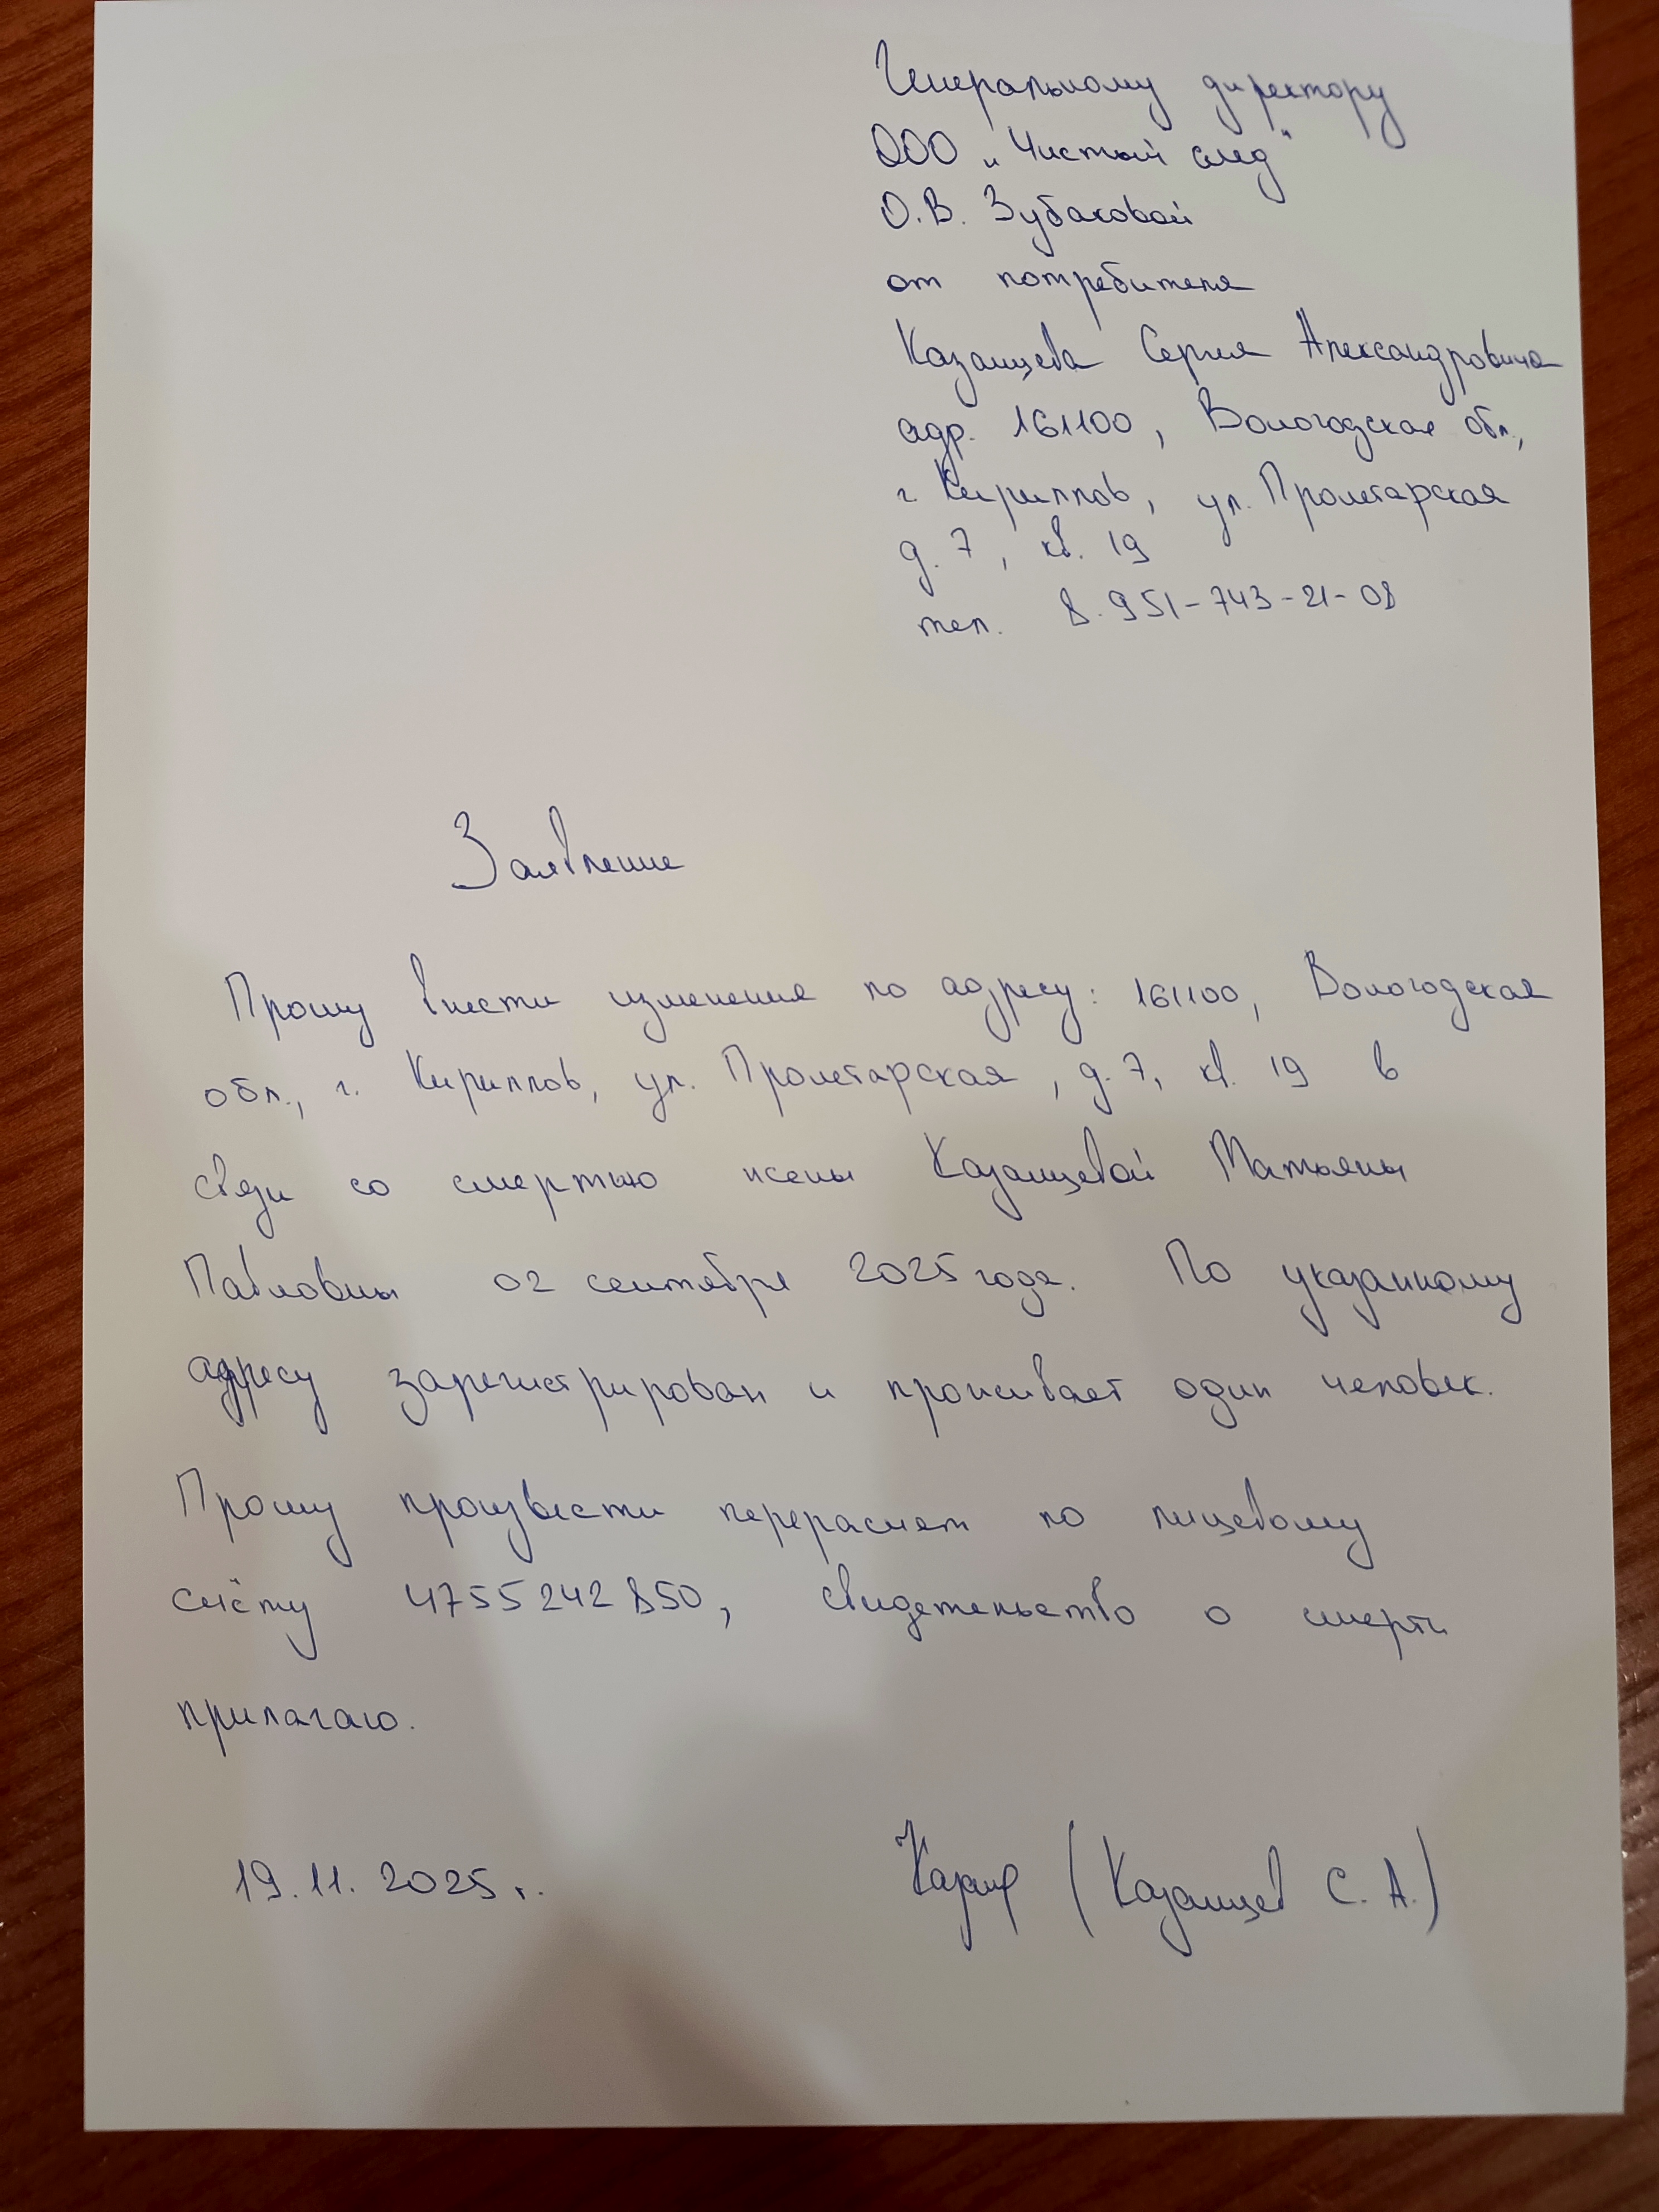 Генеральному директору
ООО "Чистый след"
О.В. Зубаковой
от потребителя
Казанцева Сергея Александровича
адр. 161100, Вологодская обл.,
г Кириллов, ул. Пролетарская
д. 7, кв. 19
тел. 8.951-743-21-08
Заявление
Прошу внести изменения по адресу: 161100, Вологодская
обл., г. Кириллов, ул. Пролетарская, д. 7, кв. 19 в
связи со смертью жены Казанцевой Татьяны
Павловны 02 сентября 2025 года. По указанному
адресу зарегистрирован и проживает один человек.
Прошу произвести перерасчет по лицевому
счёту 4755242850, свидетельство о смерти
прилагаю.
19.11.2025 г. (Казанцев С. А.)